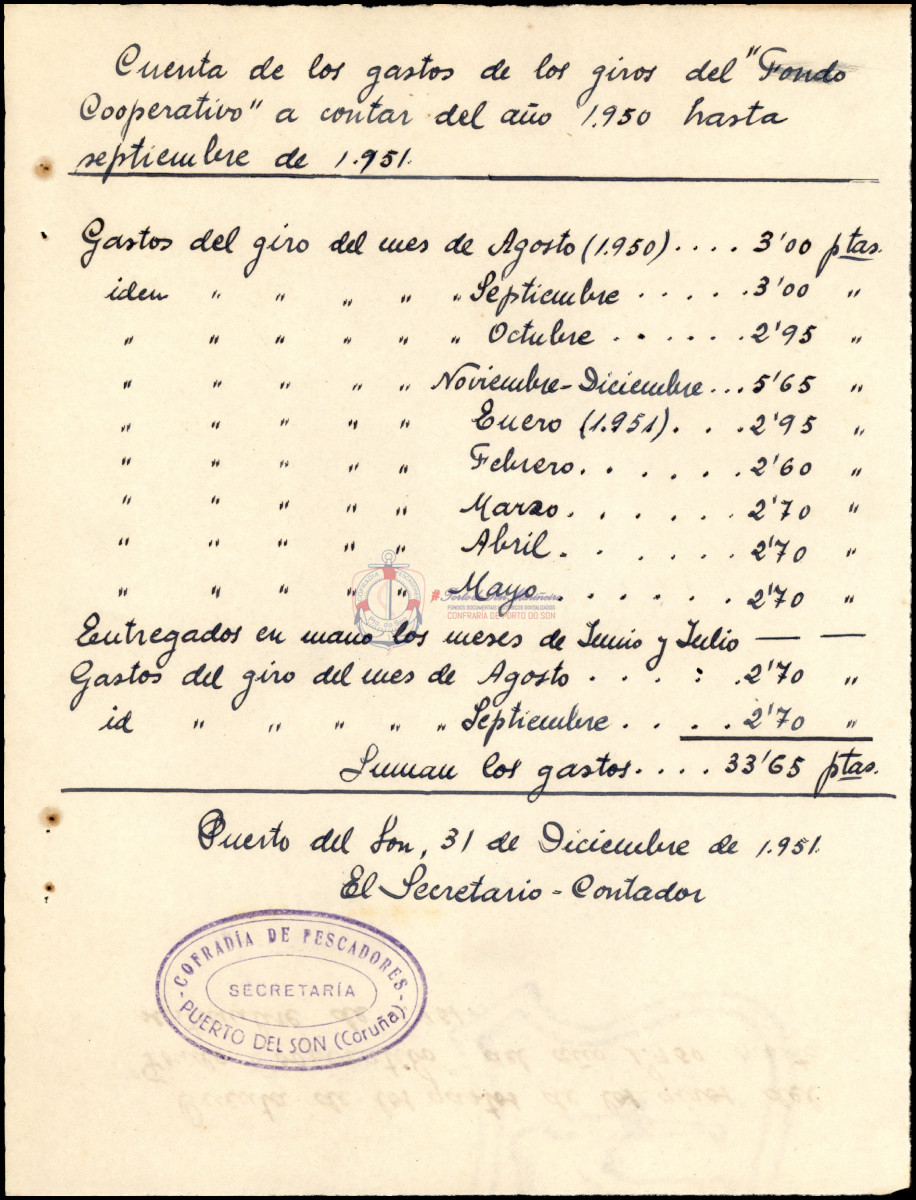 Cuenta de los gastos de los giros del "Fondo
Cooperativo" a contar del año 1.950 hasta
septiembre de 1.951.
Gastos del giro del mes de Agosto (1.950) . . . . 3'00 ptas.
iden " " " " " Septiembre . . . . . 3'00 "
" " " " " " Octubre . . . . . . 2'95 "
" " " " " Noviembre-Diciembre . . . 5'65 "
" " " " " Enero (1.951) . . . 2'95 "
" " " " " Febrero . . . . . . 2'60 "
" " " " " Marzo . . . . . . 2'70 "
" " " " " Abril . . . . . 2'70 "
" " " " " Mayo . . . . . . 2'70 "
COFRADÍA PESCADORES
FONDOS DOCUMENTAIS DIGITALIZADOS
CONFRARÍA DE PORTO DO SON
Entregados en mano los meses de Junio y Julio — —
Gastos del giro del mes de Agosto . . . : . 2'70 "
id " " " " " Septiembre . . . . . 2'70 "
Suman los gastos . . . . 33'65 ptas.
Puerto del Son, 31 de Diciembre de 1.951.
El Secretario - Contador
- COFRADÍA DE PESCADORES -
SECRETARÍA
PUERTO DEL SON (Coruña)